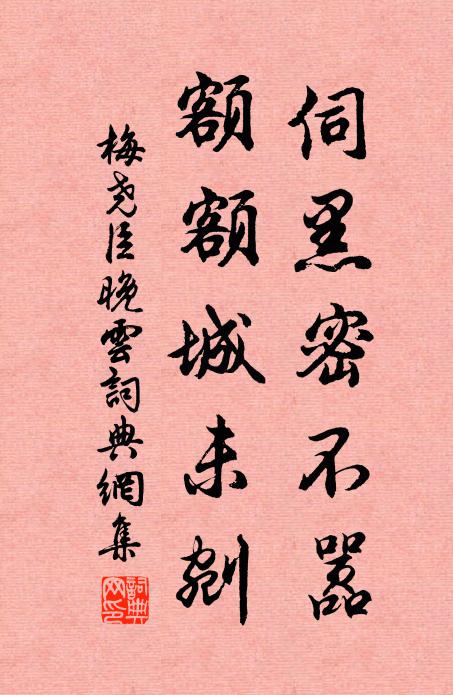 伺黑密不嚣
额额城未剜
梅尧臣晚雲詞典網集
詞典网印